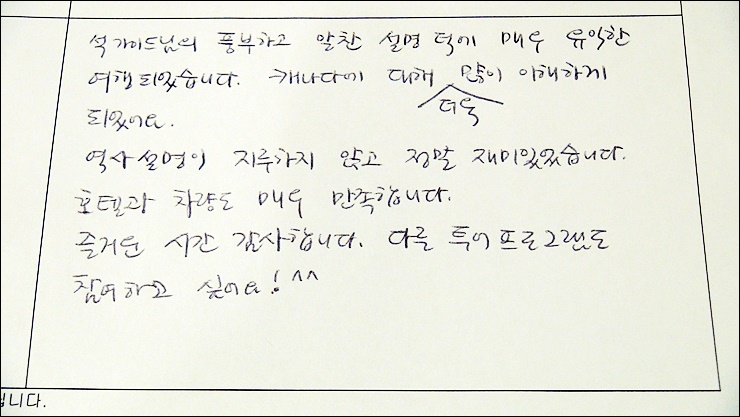 석가이드님의 풍부하고 알찬 설명 덕에 매우 유익한
여행 되었습니다. 캐나다에 대해 더욱 많이 이해하게
되었어요.
역사설명이 지루하지 않고 정말 재미있었습니다.
호텔과 차량도 매우 만족합니다.
즐거운 시간 감사합니다. 다른 투어프로그램도
참여하고 싶어요! ^^
니다.